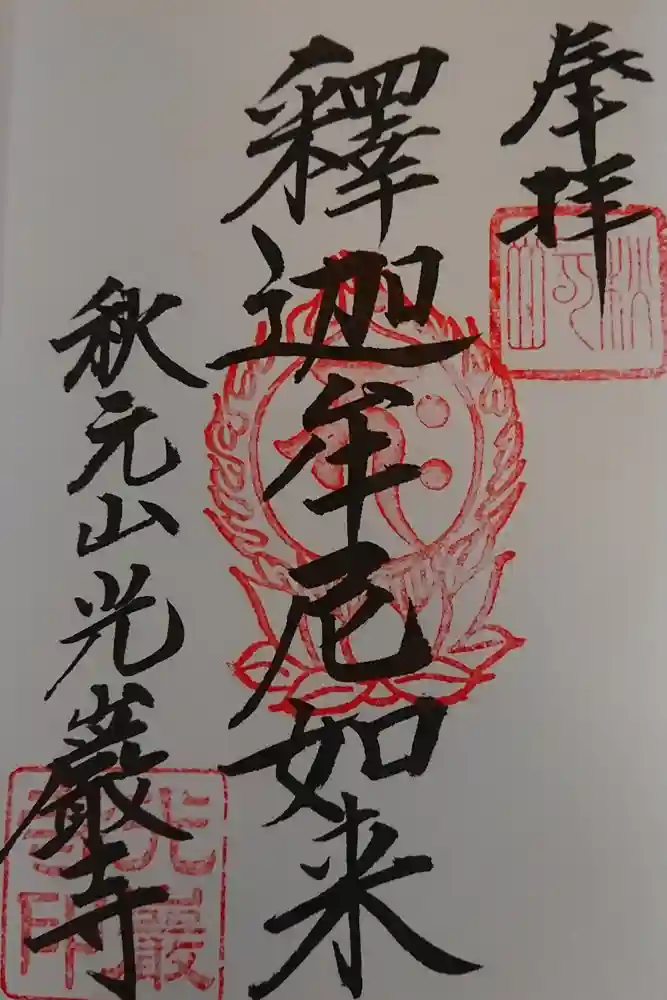 奉拝
釋迦牟尼如来
秋元山光巖寺
秋元山
光巖寺印